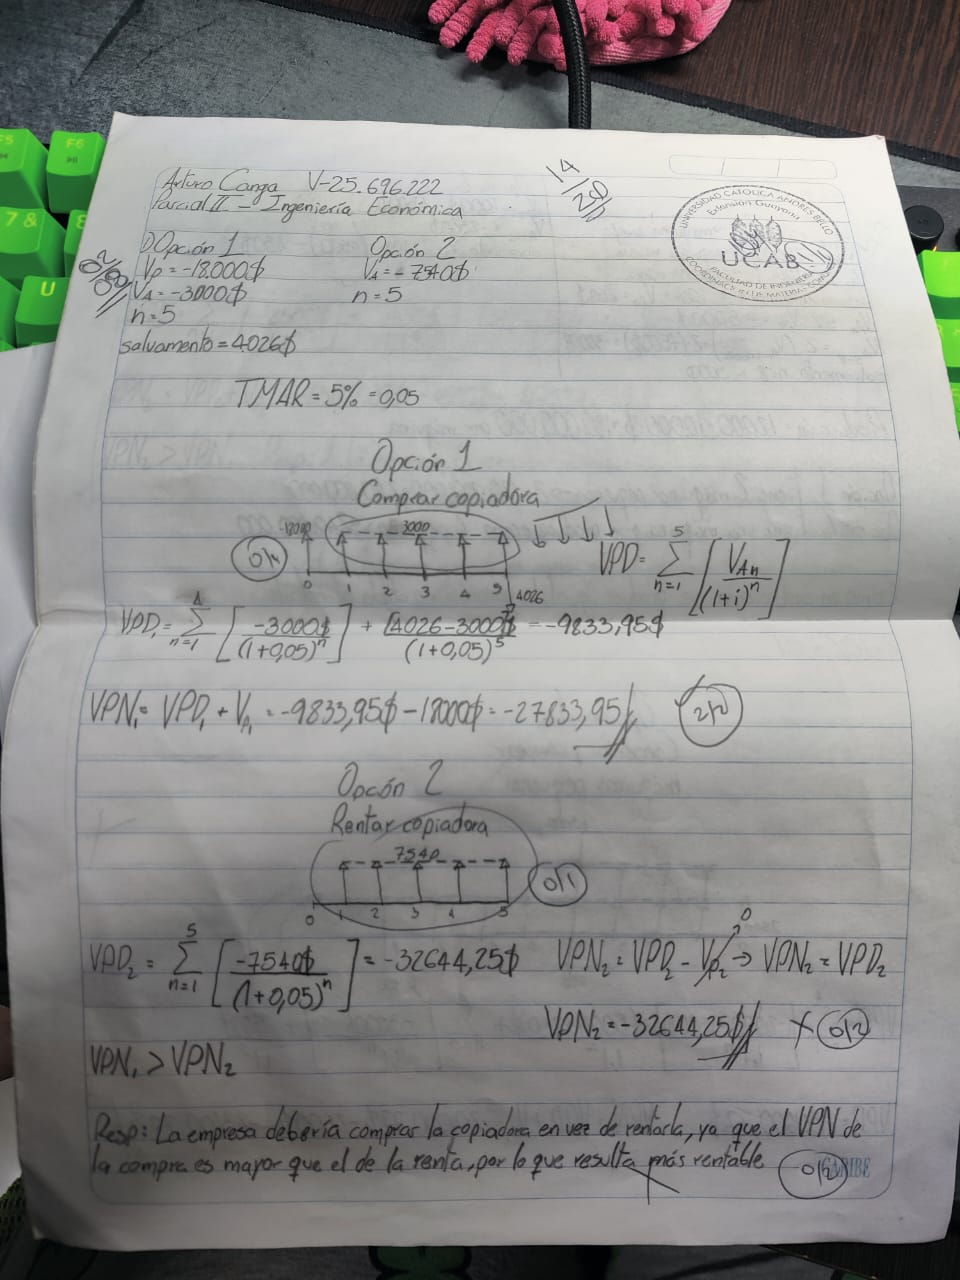 Arturo Canga V-25.696.222
Parcial II - Ingeniería Económica
14/20
UNIVERSIDAD CATOLICA ANDRES BELLO
Extensión Guayana
UCAB
FACULTAD DE INGENIERIA
1) Opción 1 Opción 2
VP = -18000$ VA = -7540$
VA = -3000$ n = 5
n = 5
salvamento = 4026$
TMAR = 5% = 0,05
Opción 1
Comprar copiadora
18000 3000
0 1 2 3 4 5 4026
VPD = Σ 5 n=1 [VAn / (1+i)^n]
VPD1 = Σ 4 n=1 [-3000$ / (1+0,05)^n] + [4026-3000]$ / (1+0,05)^5 = -9833,95$
VPN1 = VPD1 + VP1 = -9833,95$ - 18000$ = -27833,95$
2/2
Opción 2
Rentar copiadora
7540
0/1
0 1 2 3 4 5
VPD2 = Σ 5 n=1 [-7540$ / (1+0,05)^n] = -32644,25$ VPN2 = VPD2 - VP2 → 0 → VPN2 = VPD2
VPN2 = -32644,25$ X 0/2
VPN1 > VPN2
Resp: La empresa debería comprar la copiadora en vez de rentarla, ya que el VPN de
la compra es mayor que el de la renta, por lo que resulta más rentable
0/2
CARIBE